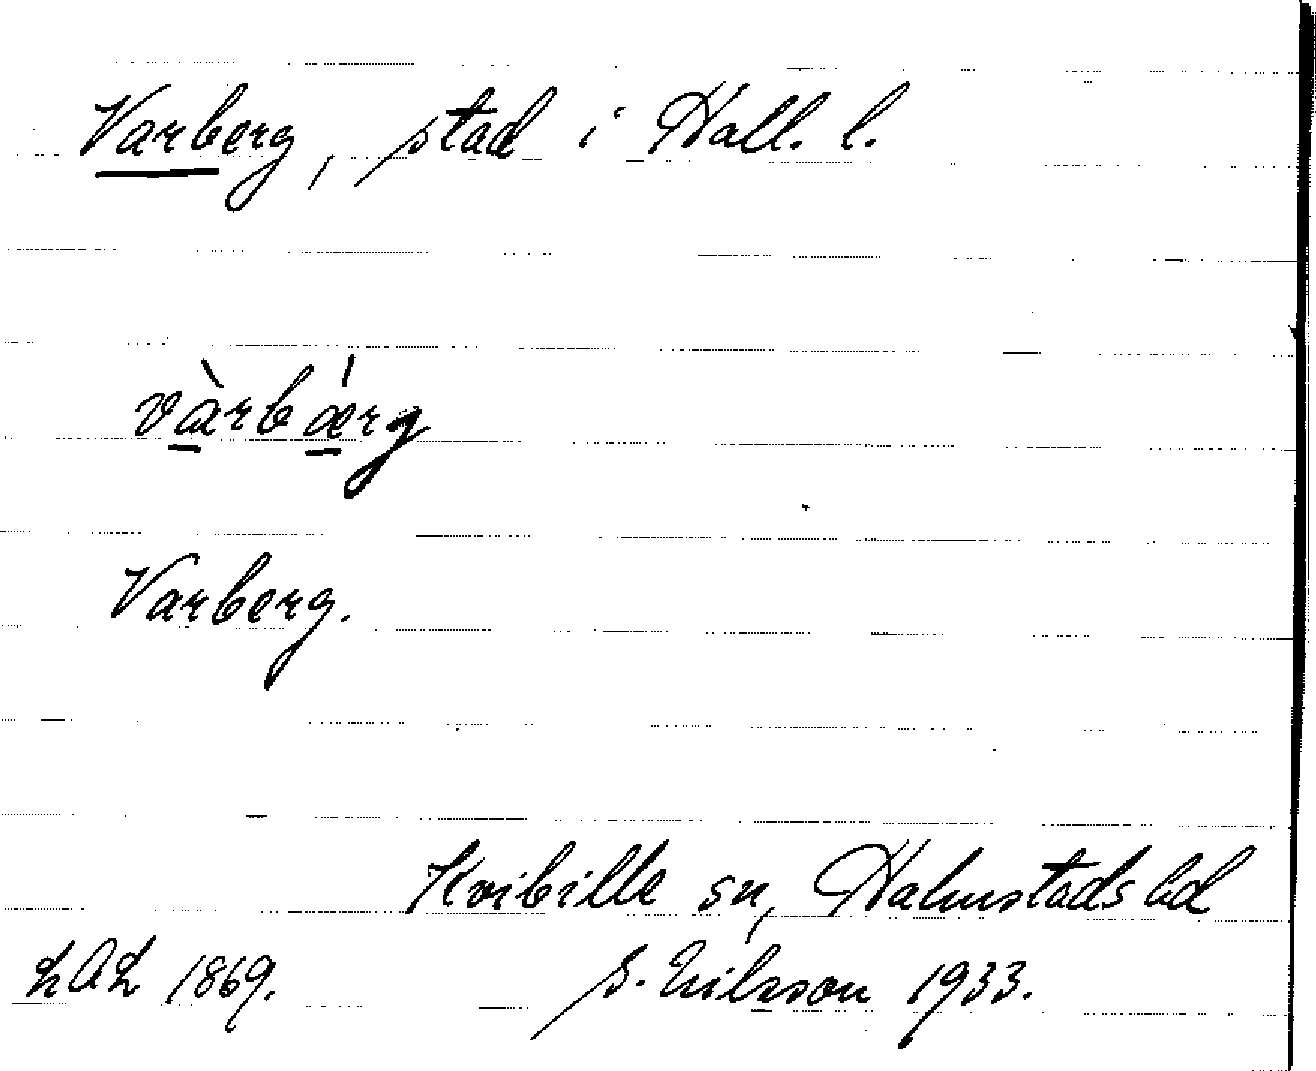 Varberg, stad i Hall. l.
vàrbǽrg
Varberg.
Kvibille sn, Halmstads hd
LAL 1869. S. Nilsson 1933.